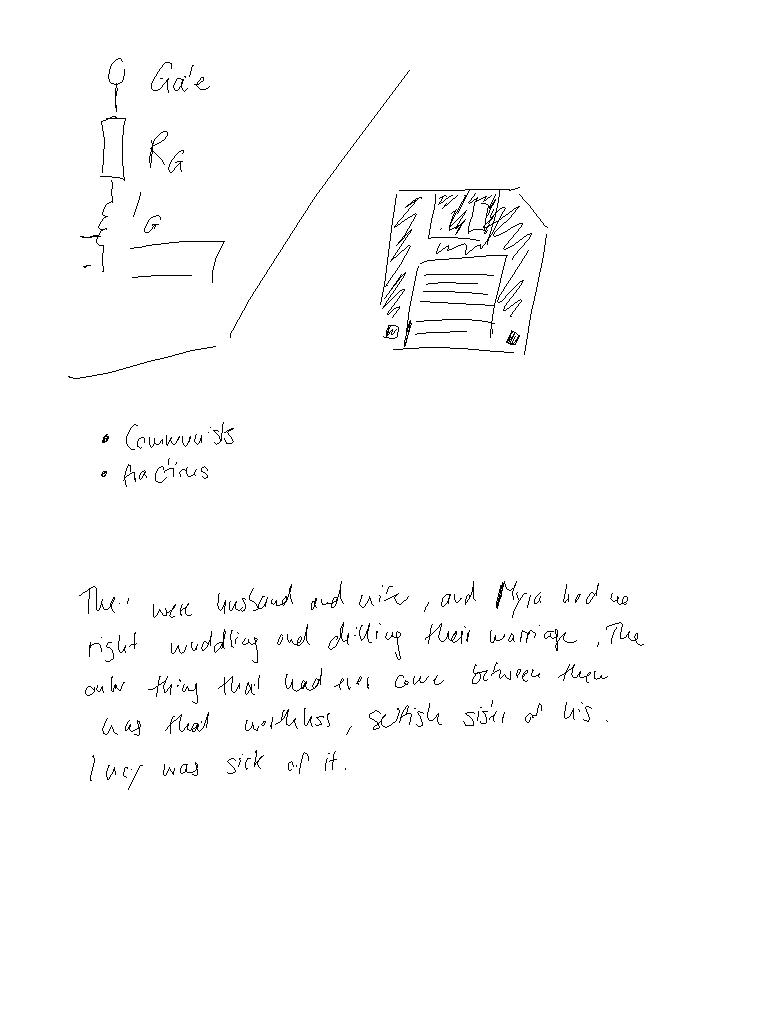 Gate
RG
G
• Communists
• fractions
They were husband and wife, and Myra had no
right muddling and dirtying their marriage. The
only thing that had ever come between them
was that worthless, selfish sister of his.
Lucy was sick of it.